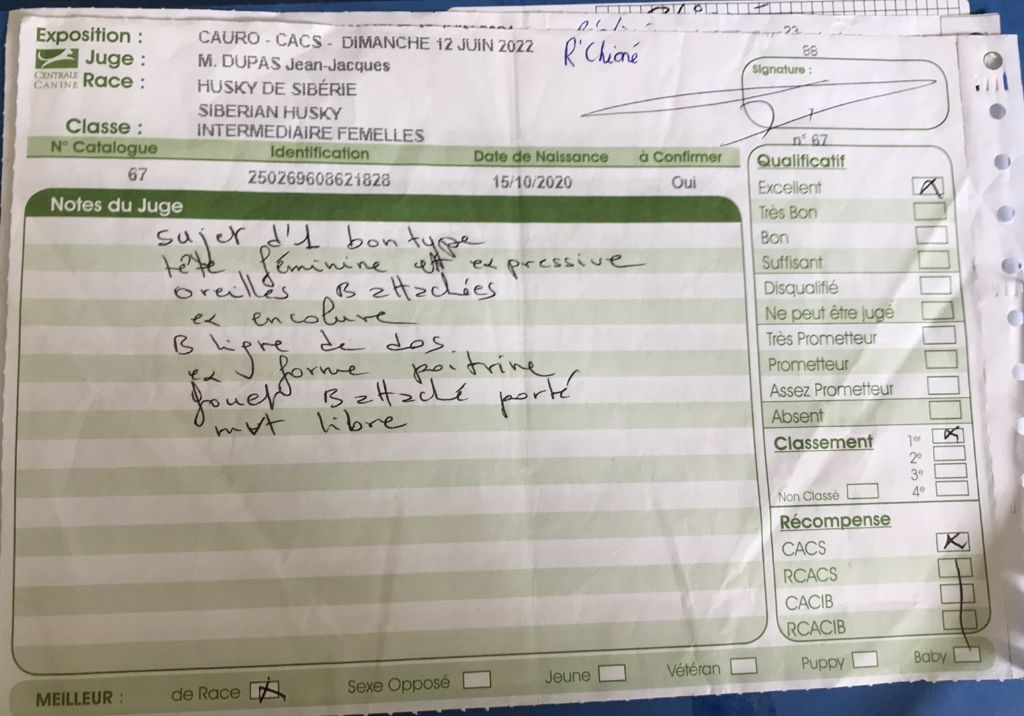 Exposition : CAURO - CACS - DIMANCHE 12 JUIN 2022
R'Chioné
88
CENTRALE CANINE
Juge : M. DUPAS Jean-Jacques
Race : HUSKY DE SIBÉRIE
SIBERIAN HUSKY
Classe : INTERMEDIAIRE FEMELLES
Signature :
n° 67
N° Catalogue Identification Date de Naissance à Confirmer
67 250269608621828 15/10/2020 Oui
Notes du Juge
sujet d'1 bon type
tête féminine et expressive
oreilles B attachées
ex encolure
B ligne de dos
ex forme poitrine
fouet B attaché porté
mvt libre
Qualificatif
Excellent
Très Bon
Bon
Suffisant
Disqualifié
Ne peut être jugé
Très Prometteur
Prometteur
Assez Prometteur
Absent
Classement 1er
2e
3e
Non Classé 4e
Récompense
CACS
RCACS
CACIB
RCACIB
MEILLEUR : de Race Sexe Opposé Jeune Vétéran Puppy Baby